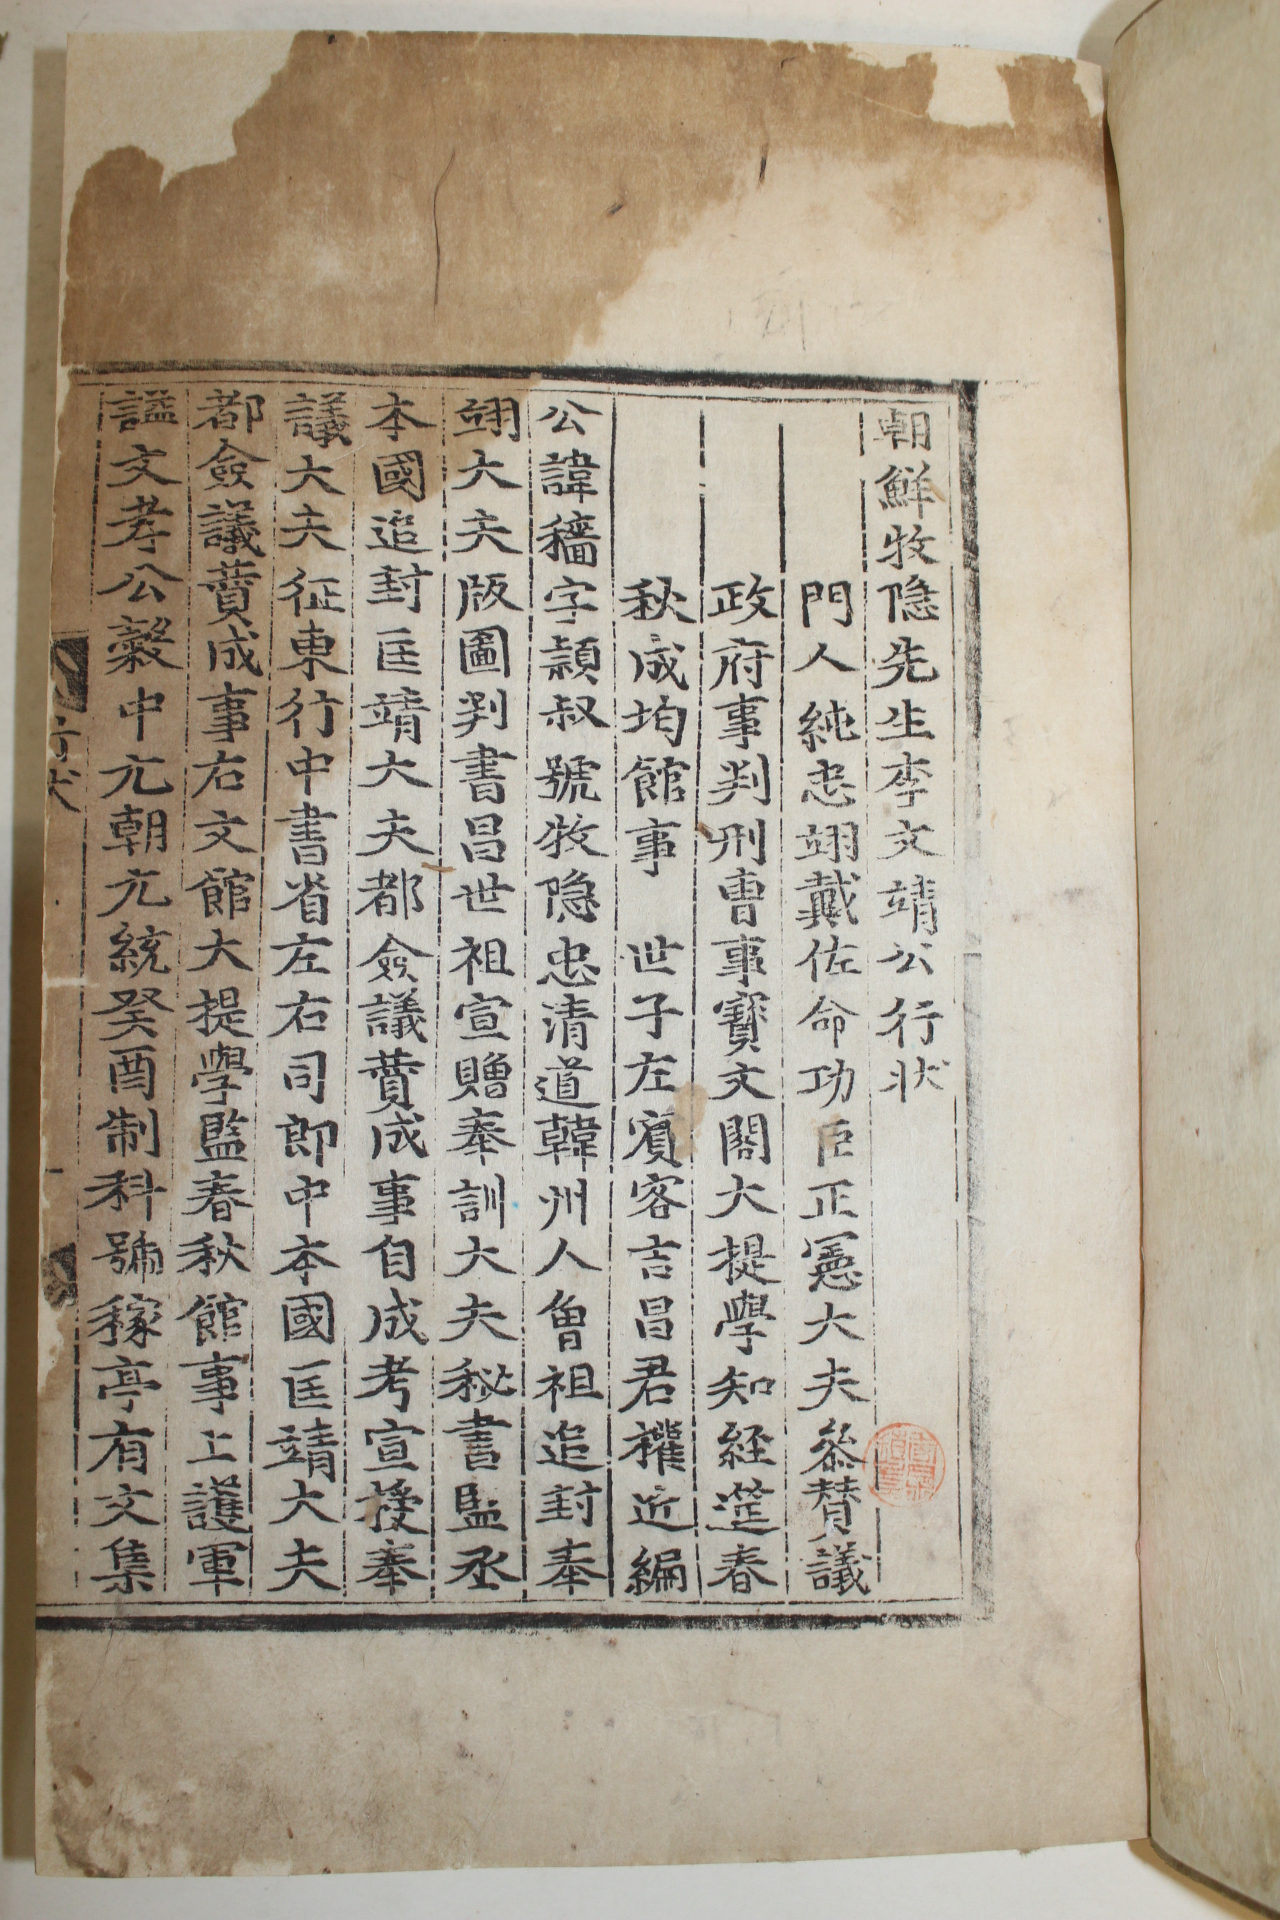 朝鮮牧隐先生李文靖公行狀
門人純忠翊戴佐命功臣正憲大夫叅賛議
政府事判刑曺事寶文閣大提學知経筵春
秋成均館事 世子左賓客吉昌君權近編
公諱穡字穎叔號牧隐忠清道韓州人曾祖追封奉
翊大夫版圖判書昌世祖宣贈奉訓大夫秘書監丞
本國追封匡靖大夫都僉議賛成事自成考宣授奉
議大夫征東行中書省左右司郎中本國匡靖大夫
都僉議賛成事右文館大提學監春秋館事上護軍
謚文孝公穀中元朝元統癸酉制科號稼亭有文集
行状